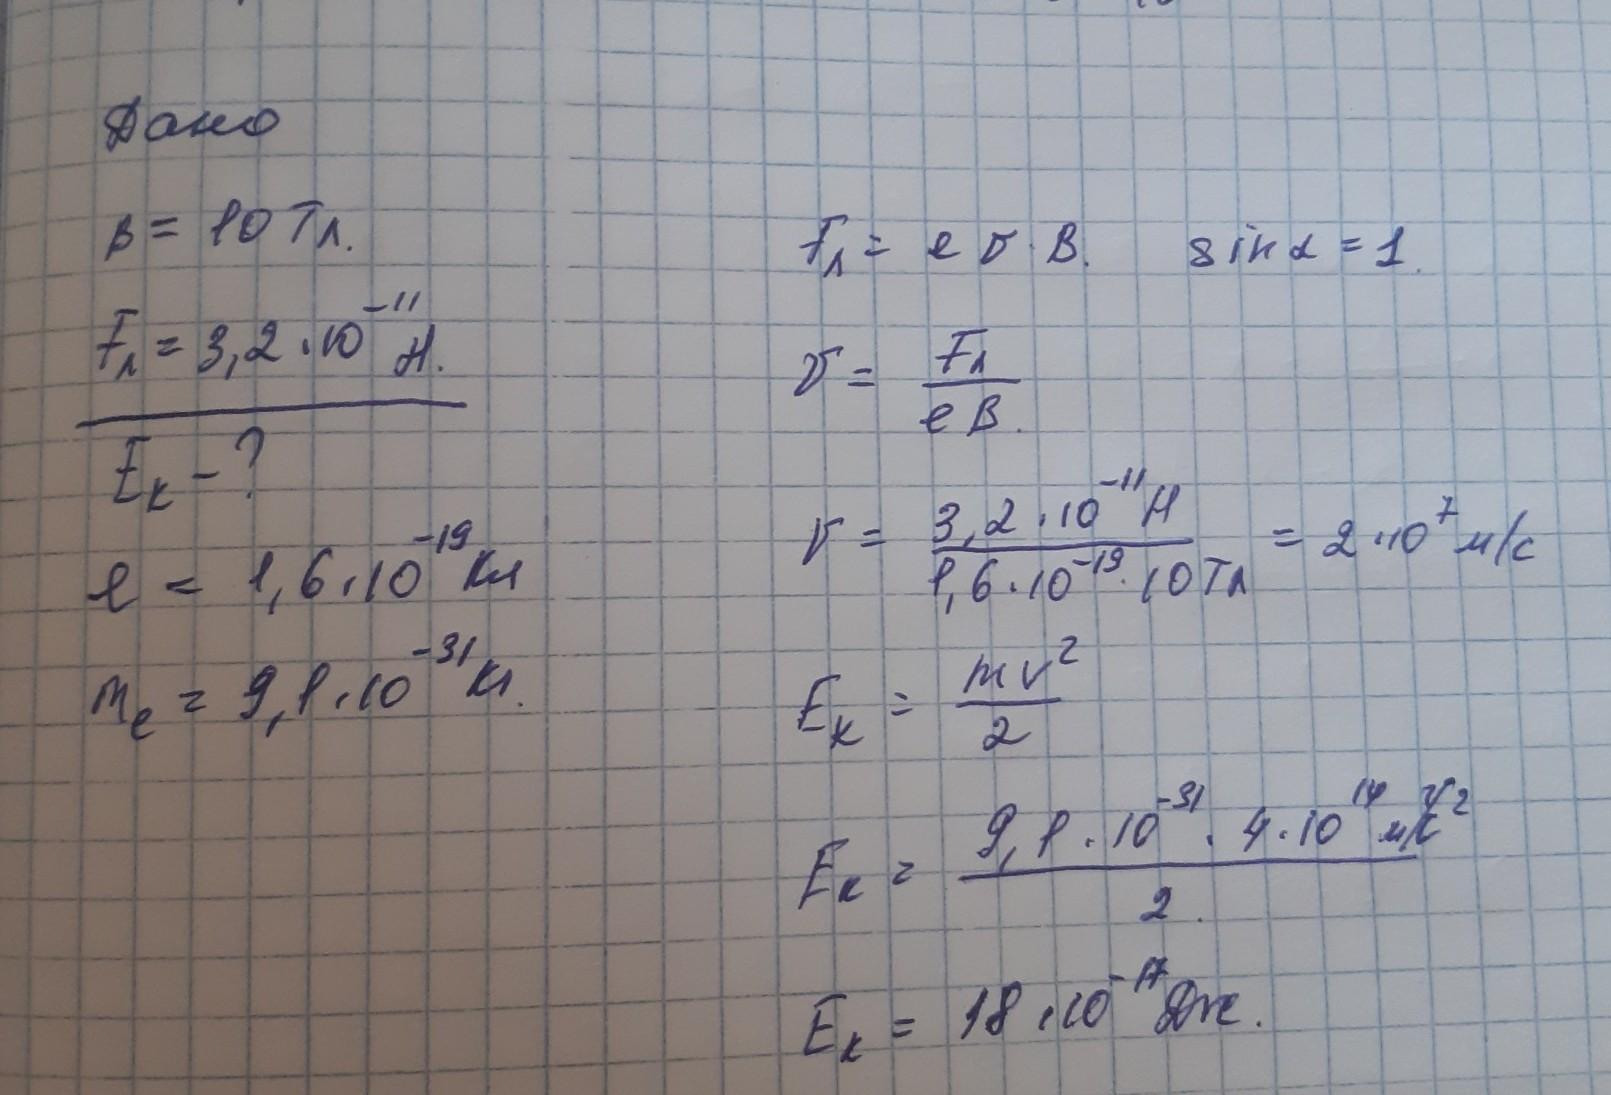 Дано
B = 10 Тл.
Fл = 3,2 · 10⁻¹¹ Н.
Eк – ?
e = 1,6 · 10⁻¹⁹ Кл
me = 9,1 · 10⁻³¹ Кг.
Fл = e v · B. sin α = 1.
v = Fл / e B.
v = 3,2 · 10⁻¹¹ Н / 1,6 · 10⁻¹⁹ · 10 Тл = 2 · 10⁷ м/с
Eк = mv² / 2
Eк = 9,1 · 10⁻³¹ · 4 · 10¹⁴ м²/с² / 2.
Eк = 18 · 10⁻¹⁷ Дж.